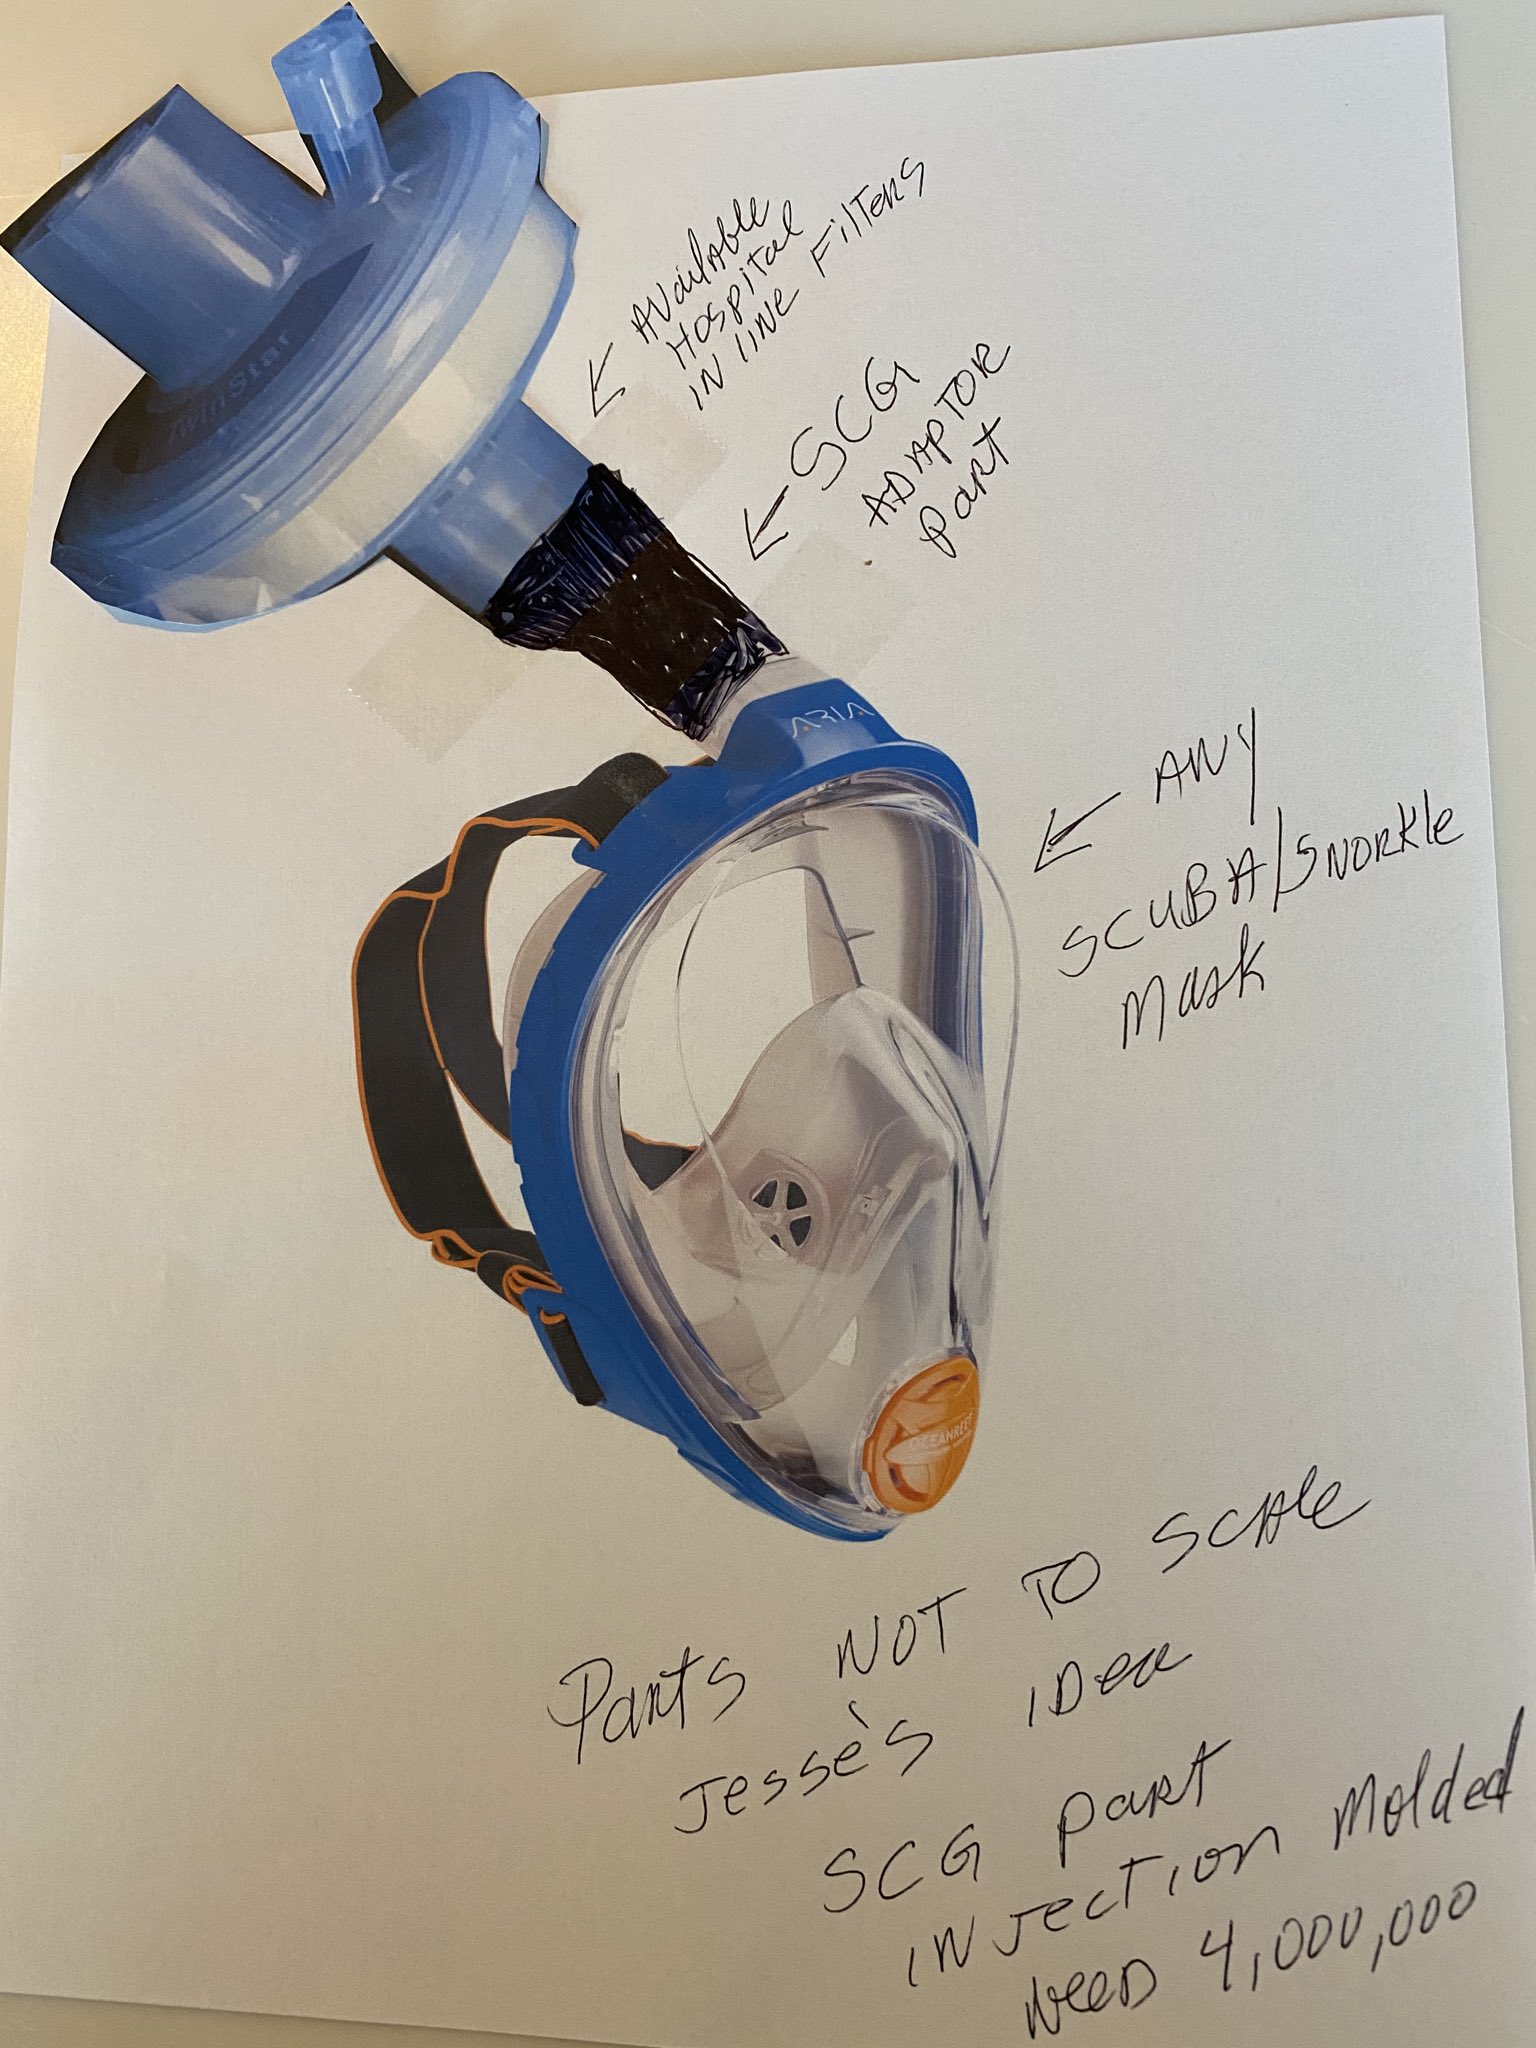 AVAilABle
Hospital
IN liNE FilTeRS
WinStar
SCG
ADAPTOR
PaRt
ARIA
ANY
SCUBA/SNORKle
Mask
OCEANREEF
PaRtS NOT TO SCAle
Jessè's iDea
SCG PaRt
iNJecTion Molded
NeeD 4,000,000